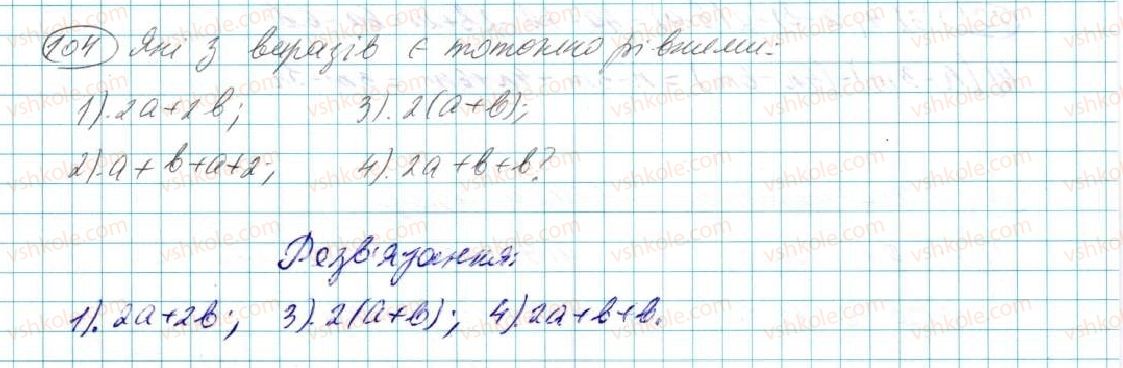 104 Які з виразів є тотожно рівними:
1). 2a+2b; 3). 2(a+b);
2). a+b+a+2; 4). 2a+b+b?
Розв'язання:
1). 2a+2b; 3). 2(a+b); 4). 2a+b+b.